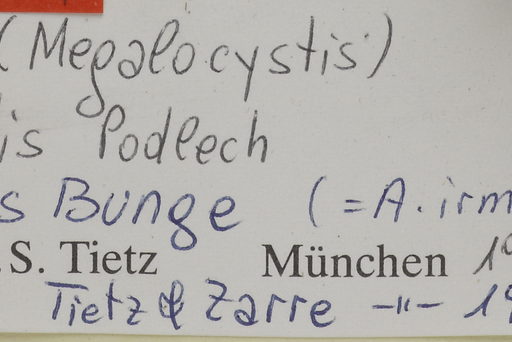 (Megalocystis)
is Podlech
s Bunge (=A. irm
. S. Tietz München 19
Tietz & Zarre -"- 19